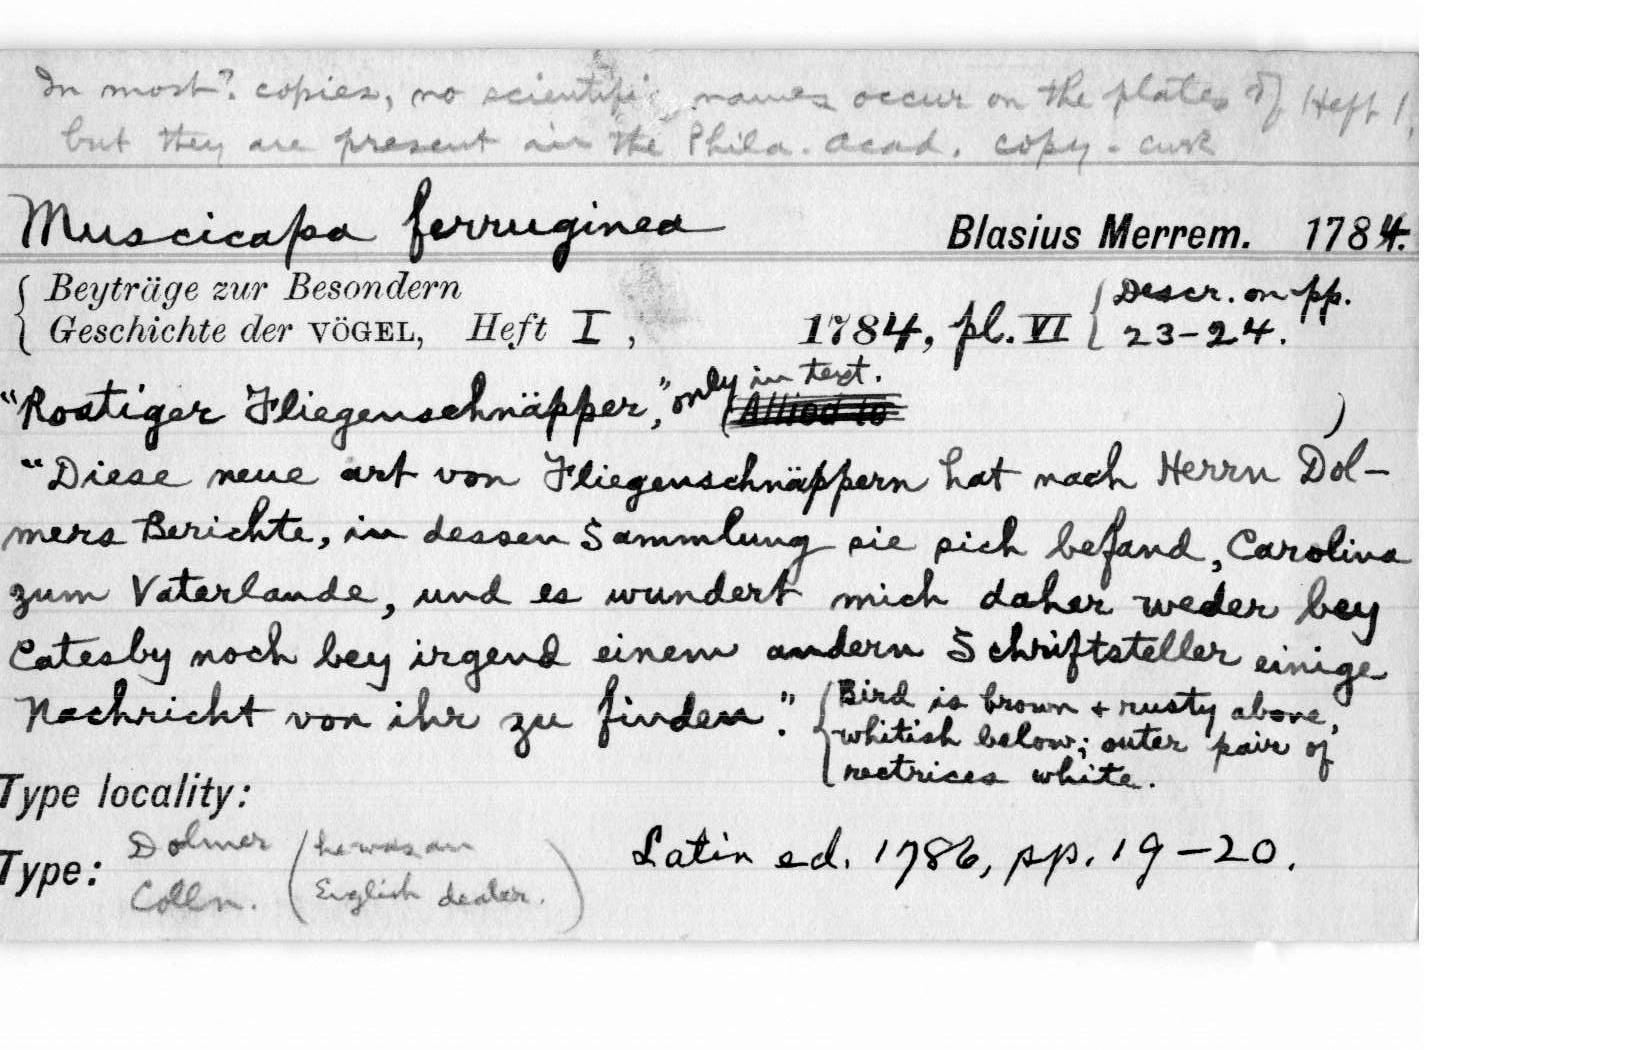 In most? copies, no scientific names occur on the plates of Heft 1,
but they are present in the Phila. Acad. copy.
Muscicapa ferruginea Blasius Merrem. 1784.
Beyträge zur Besondern
Geschichte der VÖGEL, Heft I, 1784, pl. VI { Descr. on pp. 23-24.
"Rostiger Fliegenschnäpper," only in text. (Allied to )
"Diese neue art von Fliegenschnäppern hat nach Herrn Dol-
mers Berichte, in dessen Sammlung sie sich befand, Carolina
zum Vaterlande, und es wundert mich daher weder bey
Catesby noch bey irgend einem andern Schriftsteller einige
Nachricht von ihr zu finden."
{ Bird is brown + rusty above,
whitish below; outer pair of
rectrices white.
Type locality:
Type: Dolmer Colln. (he was an English dealer.)
Latin ed. 1786, pp. 19-20.